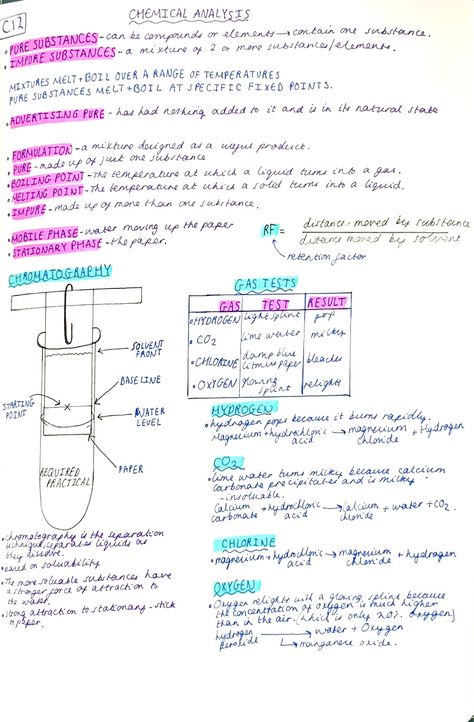 C12
CHEMICAL ANALYSIS
• PURE SUBSTANCES - can be compounds or elements → contain one substance.
• IMPURE SUBSTANCES - a mixture of 2 or more substances/elements.
MIXTURES MELT + BOIL OVER A RANGE OF TEMPERATURES
PURE SUBSTANCES MELT + BOIL AT SPECIFIC FIXED POINTS.
• ADVERTISING PURE - has had nothing added to it and is in its natural state
• FORMULATION - a mixture designed as a useful product.
• PURE - made up of just one substance
• BOILING POINT - the temperature at which a liquid turns into a gas.
• MELTING POINT - the temperature at which a solid turns into a liquid.
• IMPURE - made up of more than one substance.
• MOBILE PHASE - water moving up the paper
• STATIONARY PHASE - the paper.
RF = distance moved by substance
distance moved by solvent
retention factor
CHROMATOGRAPHY
SOLVENT FRONT
BASELINE
STARTING POINT
WATER LEVEL
PAPER
REQUIRED PRACTICAL
• chromatography is the separation
technique, separates liquids as
they dissolve.
• based on soluability
• The more soluable substances have
a stronger force of attraction to
the water.
• strong attraction to stationary - stick
to paper.
GAS TESTS
GAS TEST RESULT
• HYDROGEN light splint pop
• CO2 lime water milky
• CHLORINE damp blue litmus paper bleaches
• OXYGEN glowing splint relights
HYDROGEN
• hydrogen pops because it burns rapidly.
Magnesium + hydrochloric acid → magnesium chloride + Hydrogen
CO2
• lime water turns milky because calcium
carbonate precipitates and is milky
- insoluable.
Calcium carbonate + hydrochloric acid → calcium chloride + water + CO2
CHLORINE
• magnesium + hydrochloric acid → magnesium chloride + hydrogen
OXYGEN
• Oxygen relights with a glowing splint because
the concentration of oxygen is much higher
than in the air. (which is only 20% oxygen)
hydrogen peroxide → water + Oxygen
→ manganese oxide.